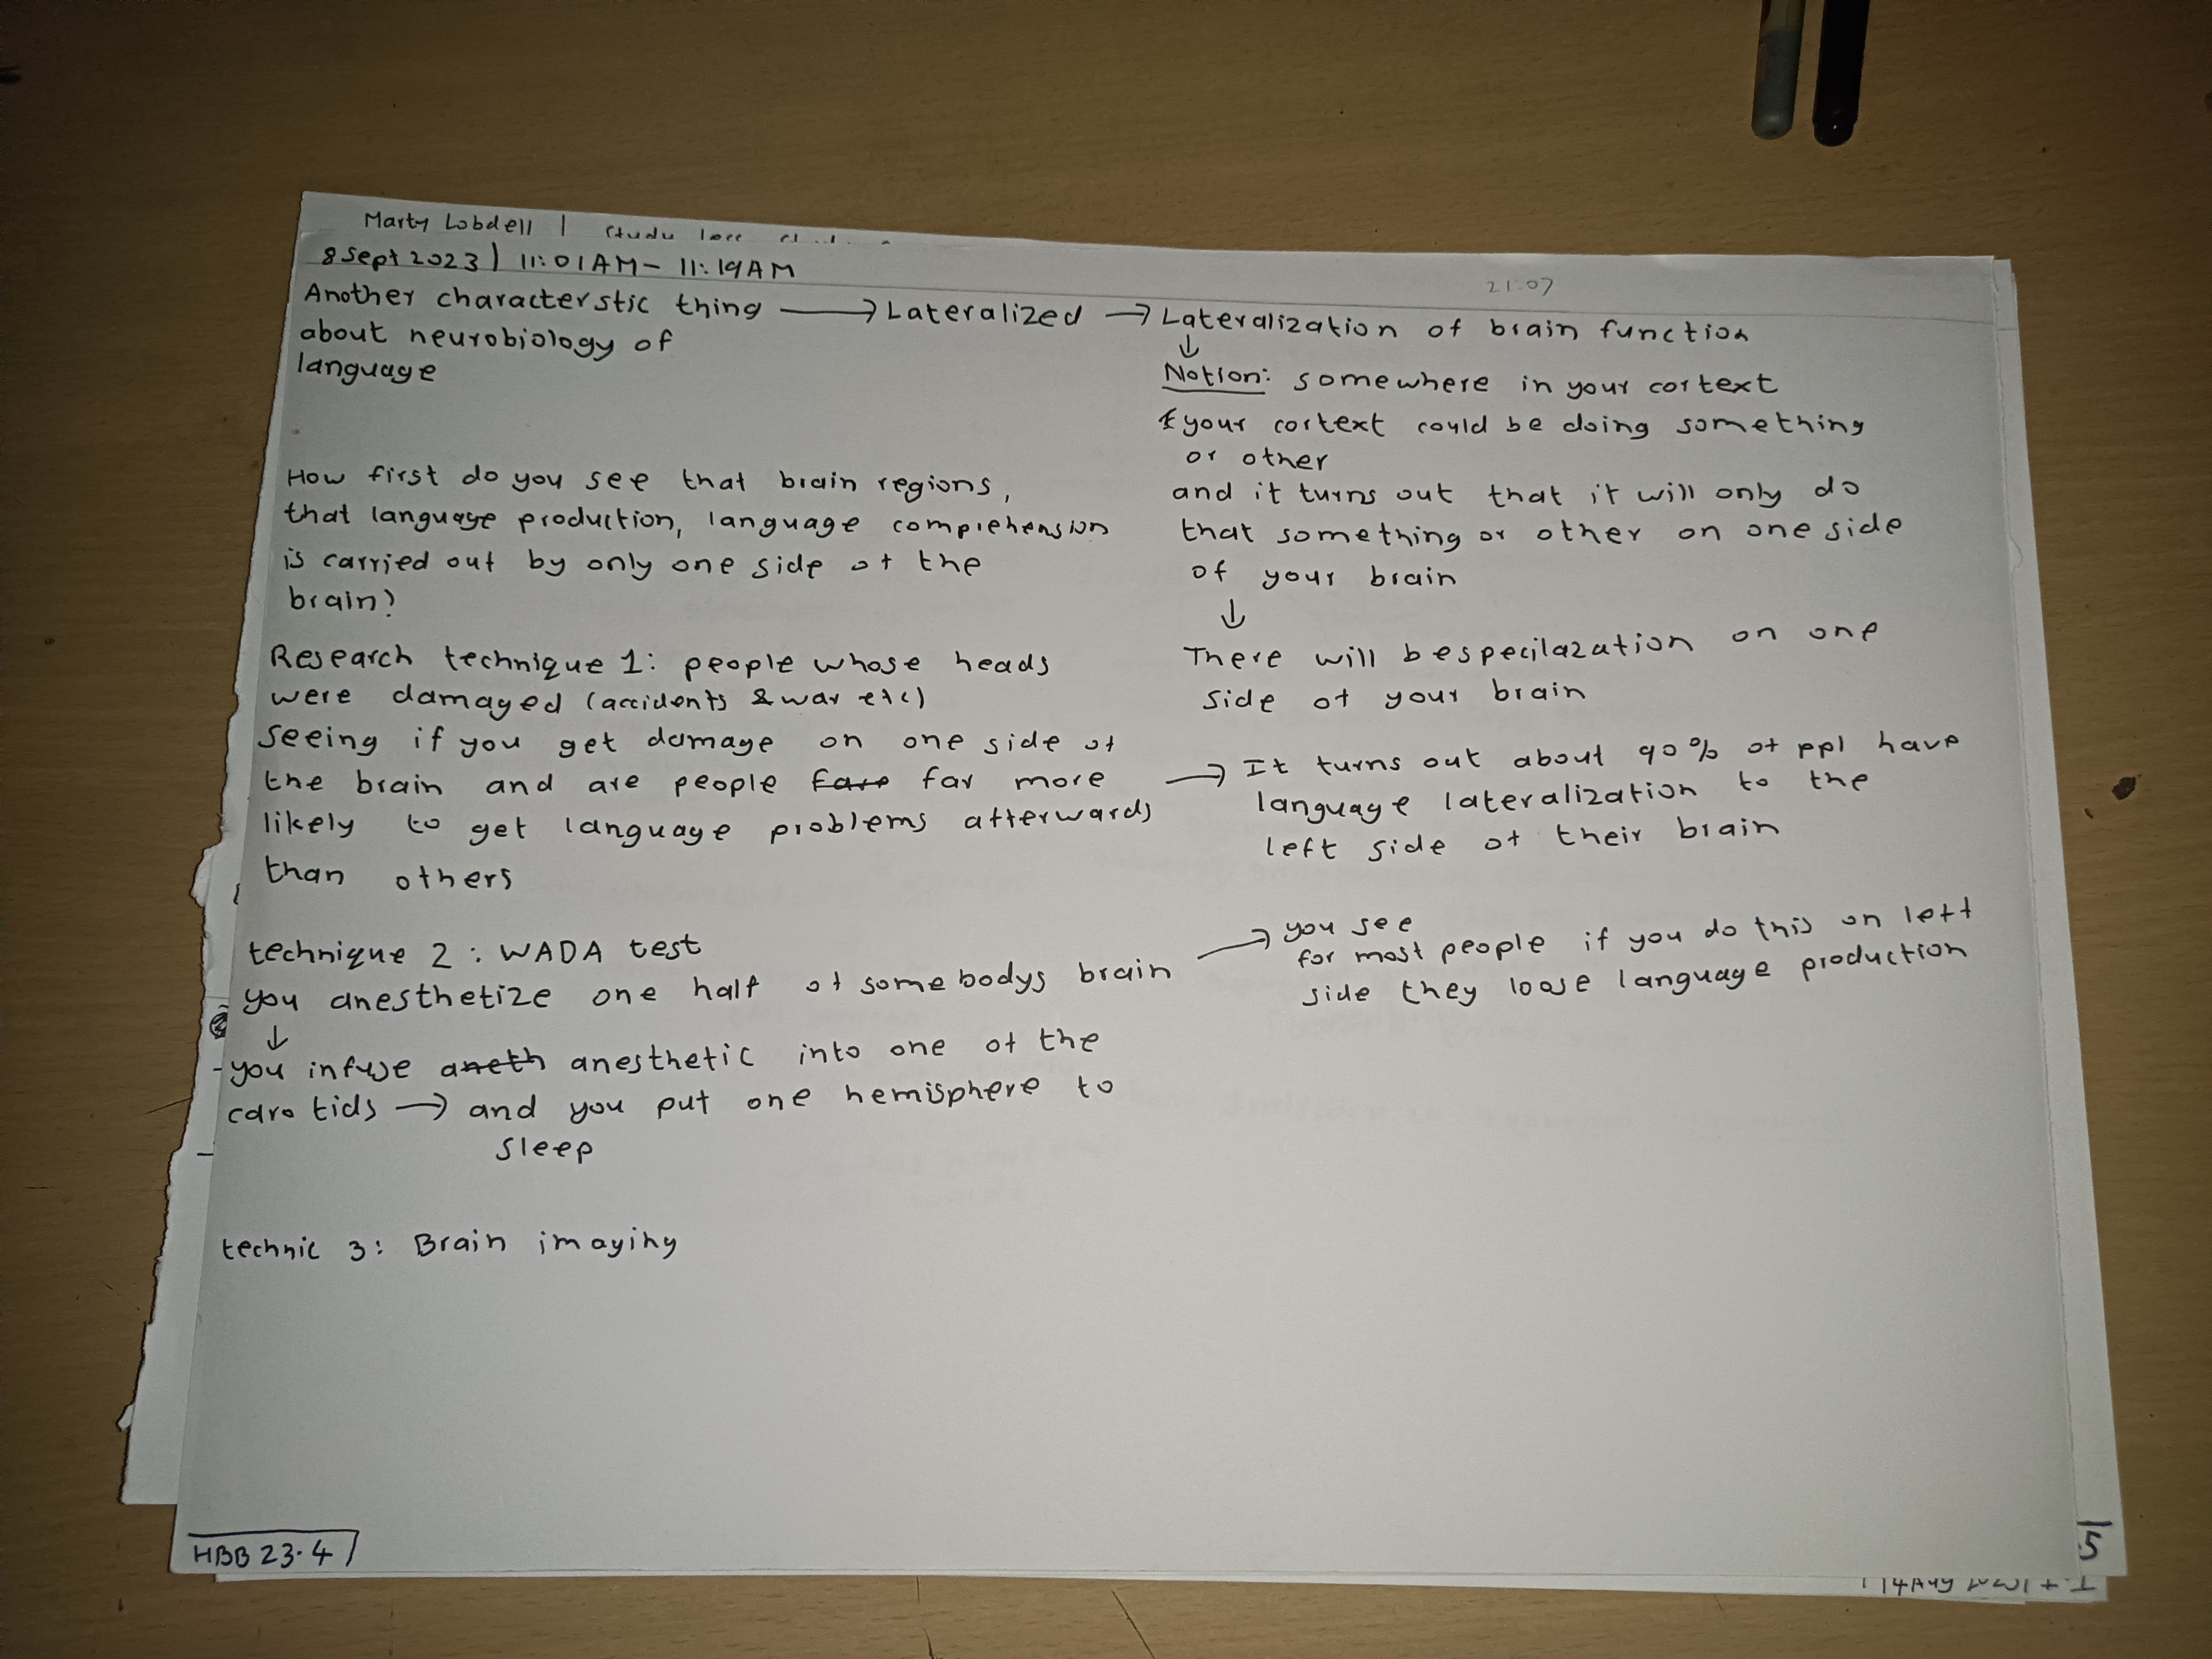 Marty Lobdell |
8 Sept 2023 | 11:01AM - 11:19AM
21:07
Another characterstic thing → Lateralized → Lateralization of brain function
about neurobiology of
language
↓
Notion: somewhere in your cortext
your cortext could be doing something
or other
and it turns out that it will only do
that something or other on one side
of your brain
↓
There will be specilazation on one
side of your brain
How first do you see that brain regions,
that language production, language comprehension
is carried out by only one side of the
brain?
Research technique 1: people whose heads
were damaged (accidents & war etc)
seeing if you get damage on one side of
the brain and are people fare far more
likely to get language problems afterwards
than others
→ It turns out about 90% of ppl have
language lateralization to the
left side of their brain
technique 2: WADA test
you anesthetize one half of somebodys brain
→ you see
for most people if you do this on left
side they loose language production
↓
- you infuse aneth anesthetic into one of the
carotids → and you put one hemisphere to
sleep
technic 3: Brain imaging
HBB 23.4
5